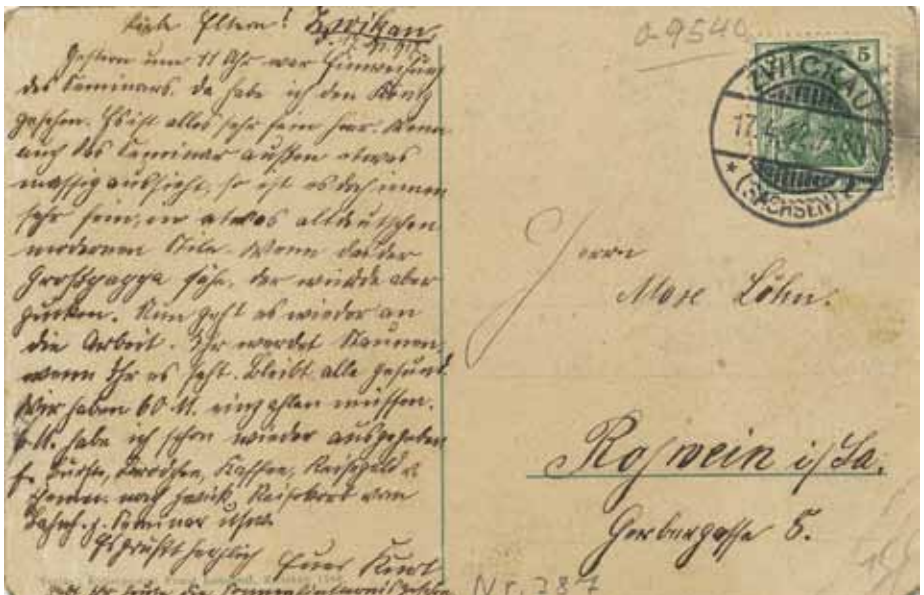 Liebe Eltern! Zwickau,
Gestern um 11 Uhr war Einweihung
des Seminars, da habe ich den König
gesehen. Es ist alles sehr fein hier. Wenn
auch das Seminar außen etwas
massig aussieht, so ist es doch innen
sehr fein, in etwas altdeutschen
modernen Stile. Wenn das der
Großpappa sähe, der würde aber
gucken. Nun geht es wieder an
die Arbeit. Ihr werdet staunen,
wenn Ihr es seht. Bleibt alle gesund.
Wir haben 60 M. einzahlen müssen.
M. habe ich schon wieder ausgegeben
f. Bürste, Brödchen, Kaffee, Reisegeld
nach Zwick, Reisekorb vom
Bahnh. z. Seminar usw.
Es grüßt herzlich Euer Kurt
a 9540
5
ZWICKAU
17.4.
* (SACHSEN)
Herrn
Max Löhn.
Roßwein i/Sa.
Gerbergasse 5.
Nr. 287